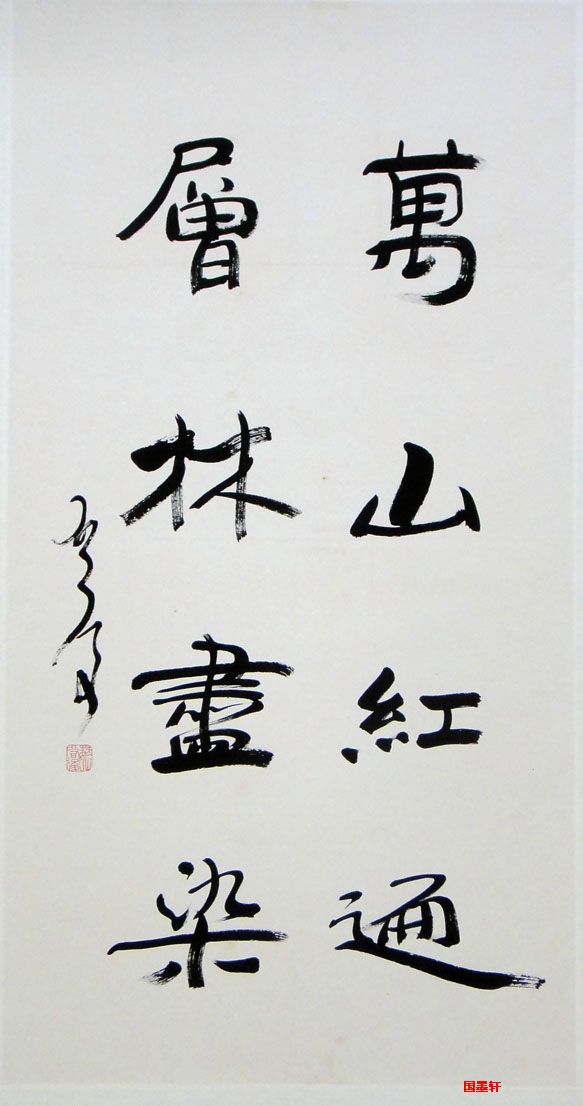 萬山紅遍
層林盡染
国墨轩